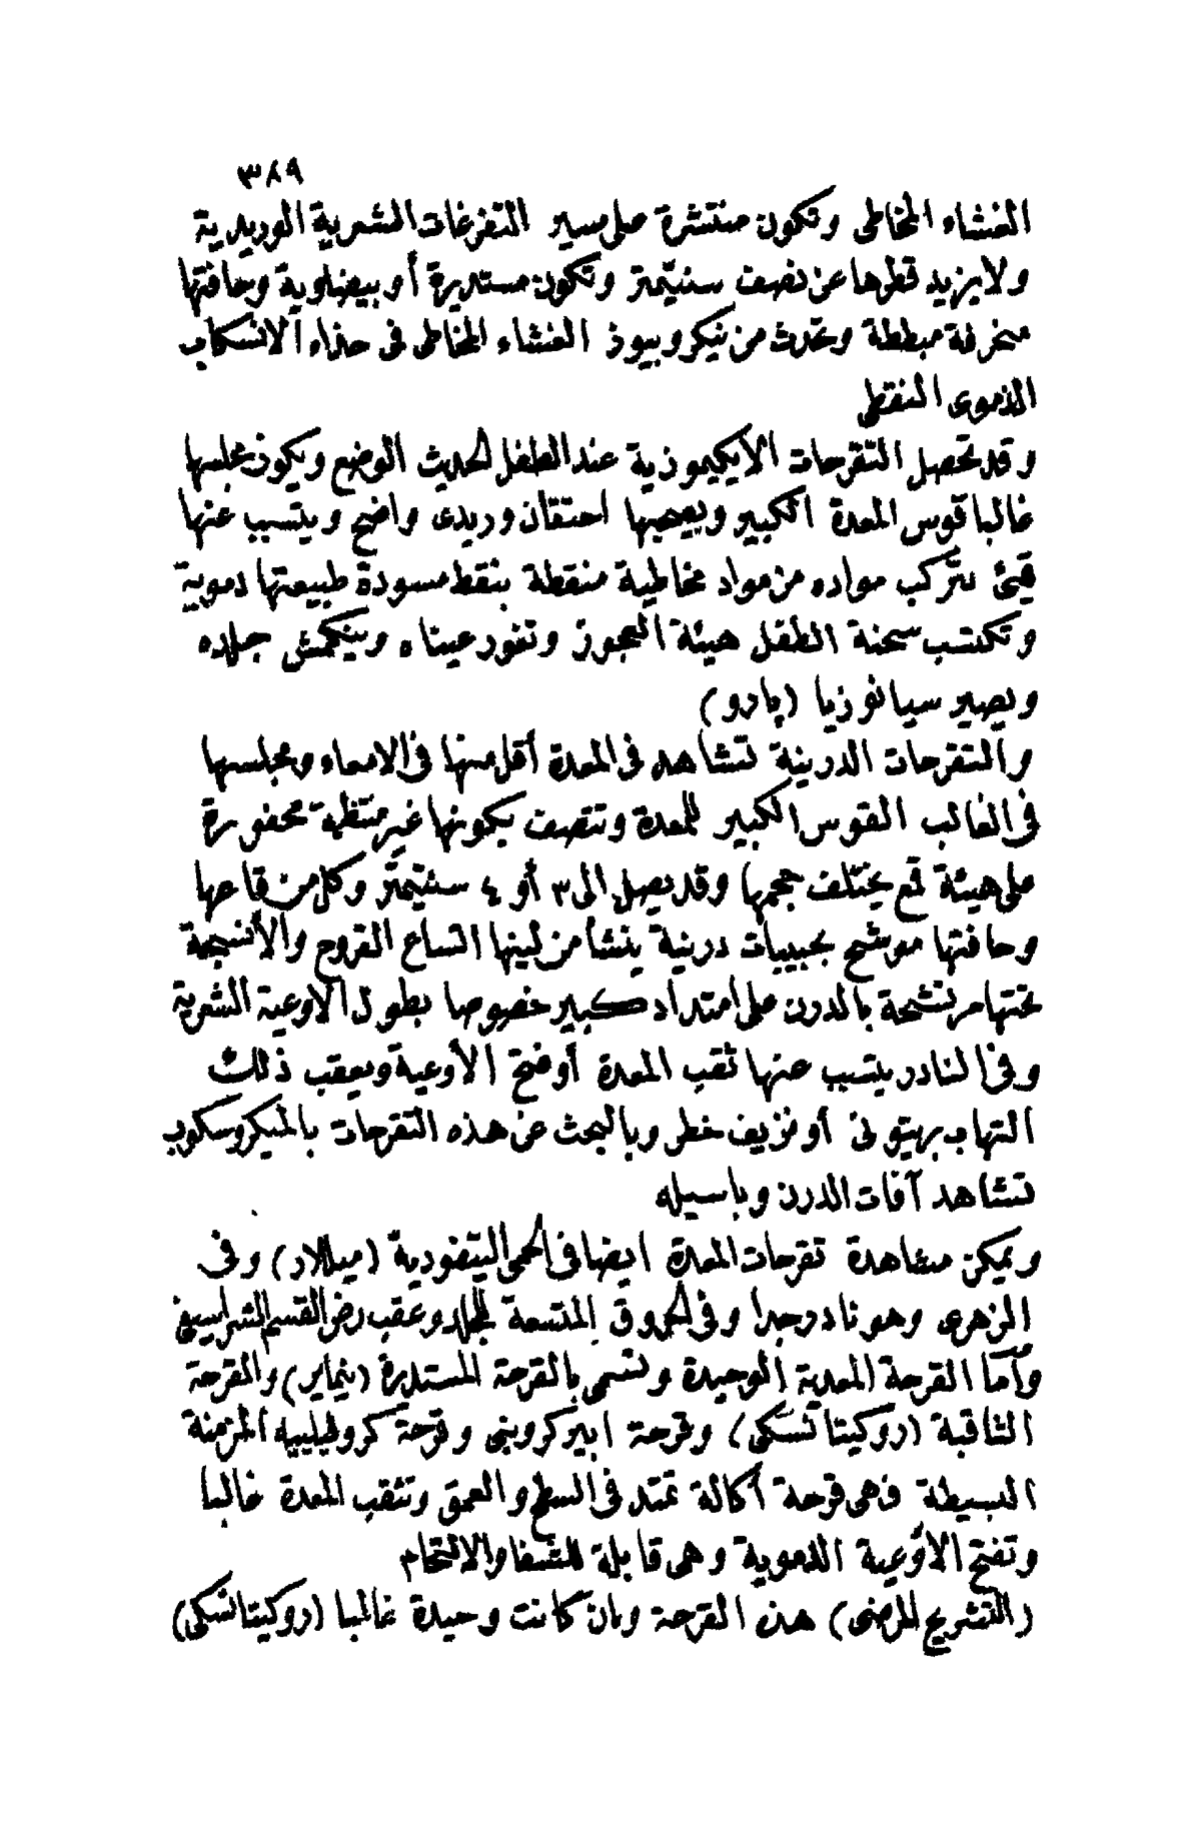 ٣٨٩
الغشاء المخاطى وتكون منتشرة على سير التفرعات الشعرية الوريدية
ولا يزيد قطرها عن نصف سنتيمتر وتكون مستديرة أو بيضاوية وحافتها
منحرفة مبططة وتحدث من نيكروبيوز الغشاء المخاطى فى حذاء الانسكاب
الدموى النقطى
وقد تحصل التقرحات الايكيموزية عند الطفل الحديث الوضع ويكون مجلسها
غالبا قوس المعدة الكبير ويصحبها احتقان وريدى واضح ويتسبب عنها
قيئ تتركب مواده من مواد مخاطية منقطة بنقط مسودة طبيعتها دموية
وتكتسب سحنة الطفل هيئة العجوز وتغور عيناه وينكمش جلده
ويصير سيانوزيا (پادو)
والتقرحات الدرنية تشاهد فى المعدة أقل منها فى الامعاء ومجلسها
فى الغالب القوس الكبير للمعدة وتتصف بكونها غير منتظمة محفورة
على هيئة قمع يختلف حجمها وقد يصل الى ٣ أو ٤ سنتيمتر وكل من قاعها
وحافتها موشح بحبيبات درنية ينشأ من لينها اتساع القروح والأنسجة
تحتها مرتشحة بالدرن على امتداد كبير خصوصا بطول الاوعية الشعرية
وفى النادر يتسبب عنها ثقب المعدة أو فتح الأوعية ويعقب ذلك
التهاب بريتونى أو نزيف خطر وبالبحث عن هذه التقرحات بالميكروسكوب
تشاهد آفات الدرن وباسيله
ويمكن مشاهدة تقرحات المعدة ايضا فى الحمى التيفودية (ميللار) وفى
الزهرى وهو نادر جدا وفى الحروق المتسعة للجلد وعقب رض القسم الشراسيفى
وأما القرحة المعدية الوحيدة وتسمى بالقرحة المستديرة (نيماير) والقرحة
الثاقبة (روكيتانسكى) وقرحة ابيركرونبى وقرحة كروفيلييه المزمنة
البسيطة فهى قرحة أكالة تمتد فى السطح والعمق وتثقب المعدة غالبا
وتفتح الاوعية الدموية وهى قابلة للشفا والالتحام
(التشريح المرضى) هذه القرحة وان كانت وحيدة غالبا (روكيتانسكى)